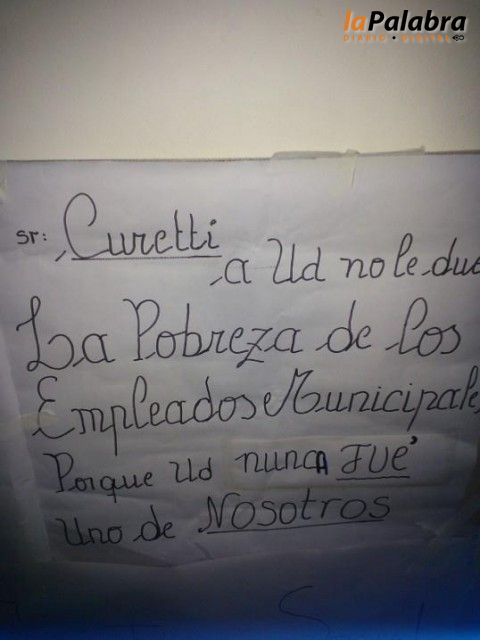 laPalabra
DIARIO • DIGITAL
sr: Curetti
a Ud no le due
La Pobreza de los
Empleados Municipale
Porque Ud nunca FUÉ
Uno de NOSOTROS